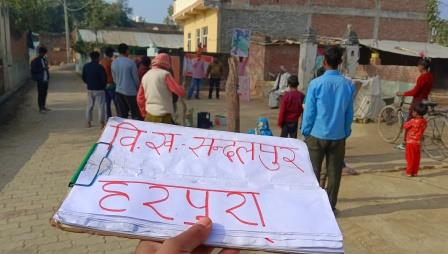 वि.ख.- सन्दलपुर
हरपुरा